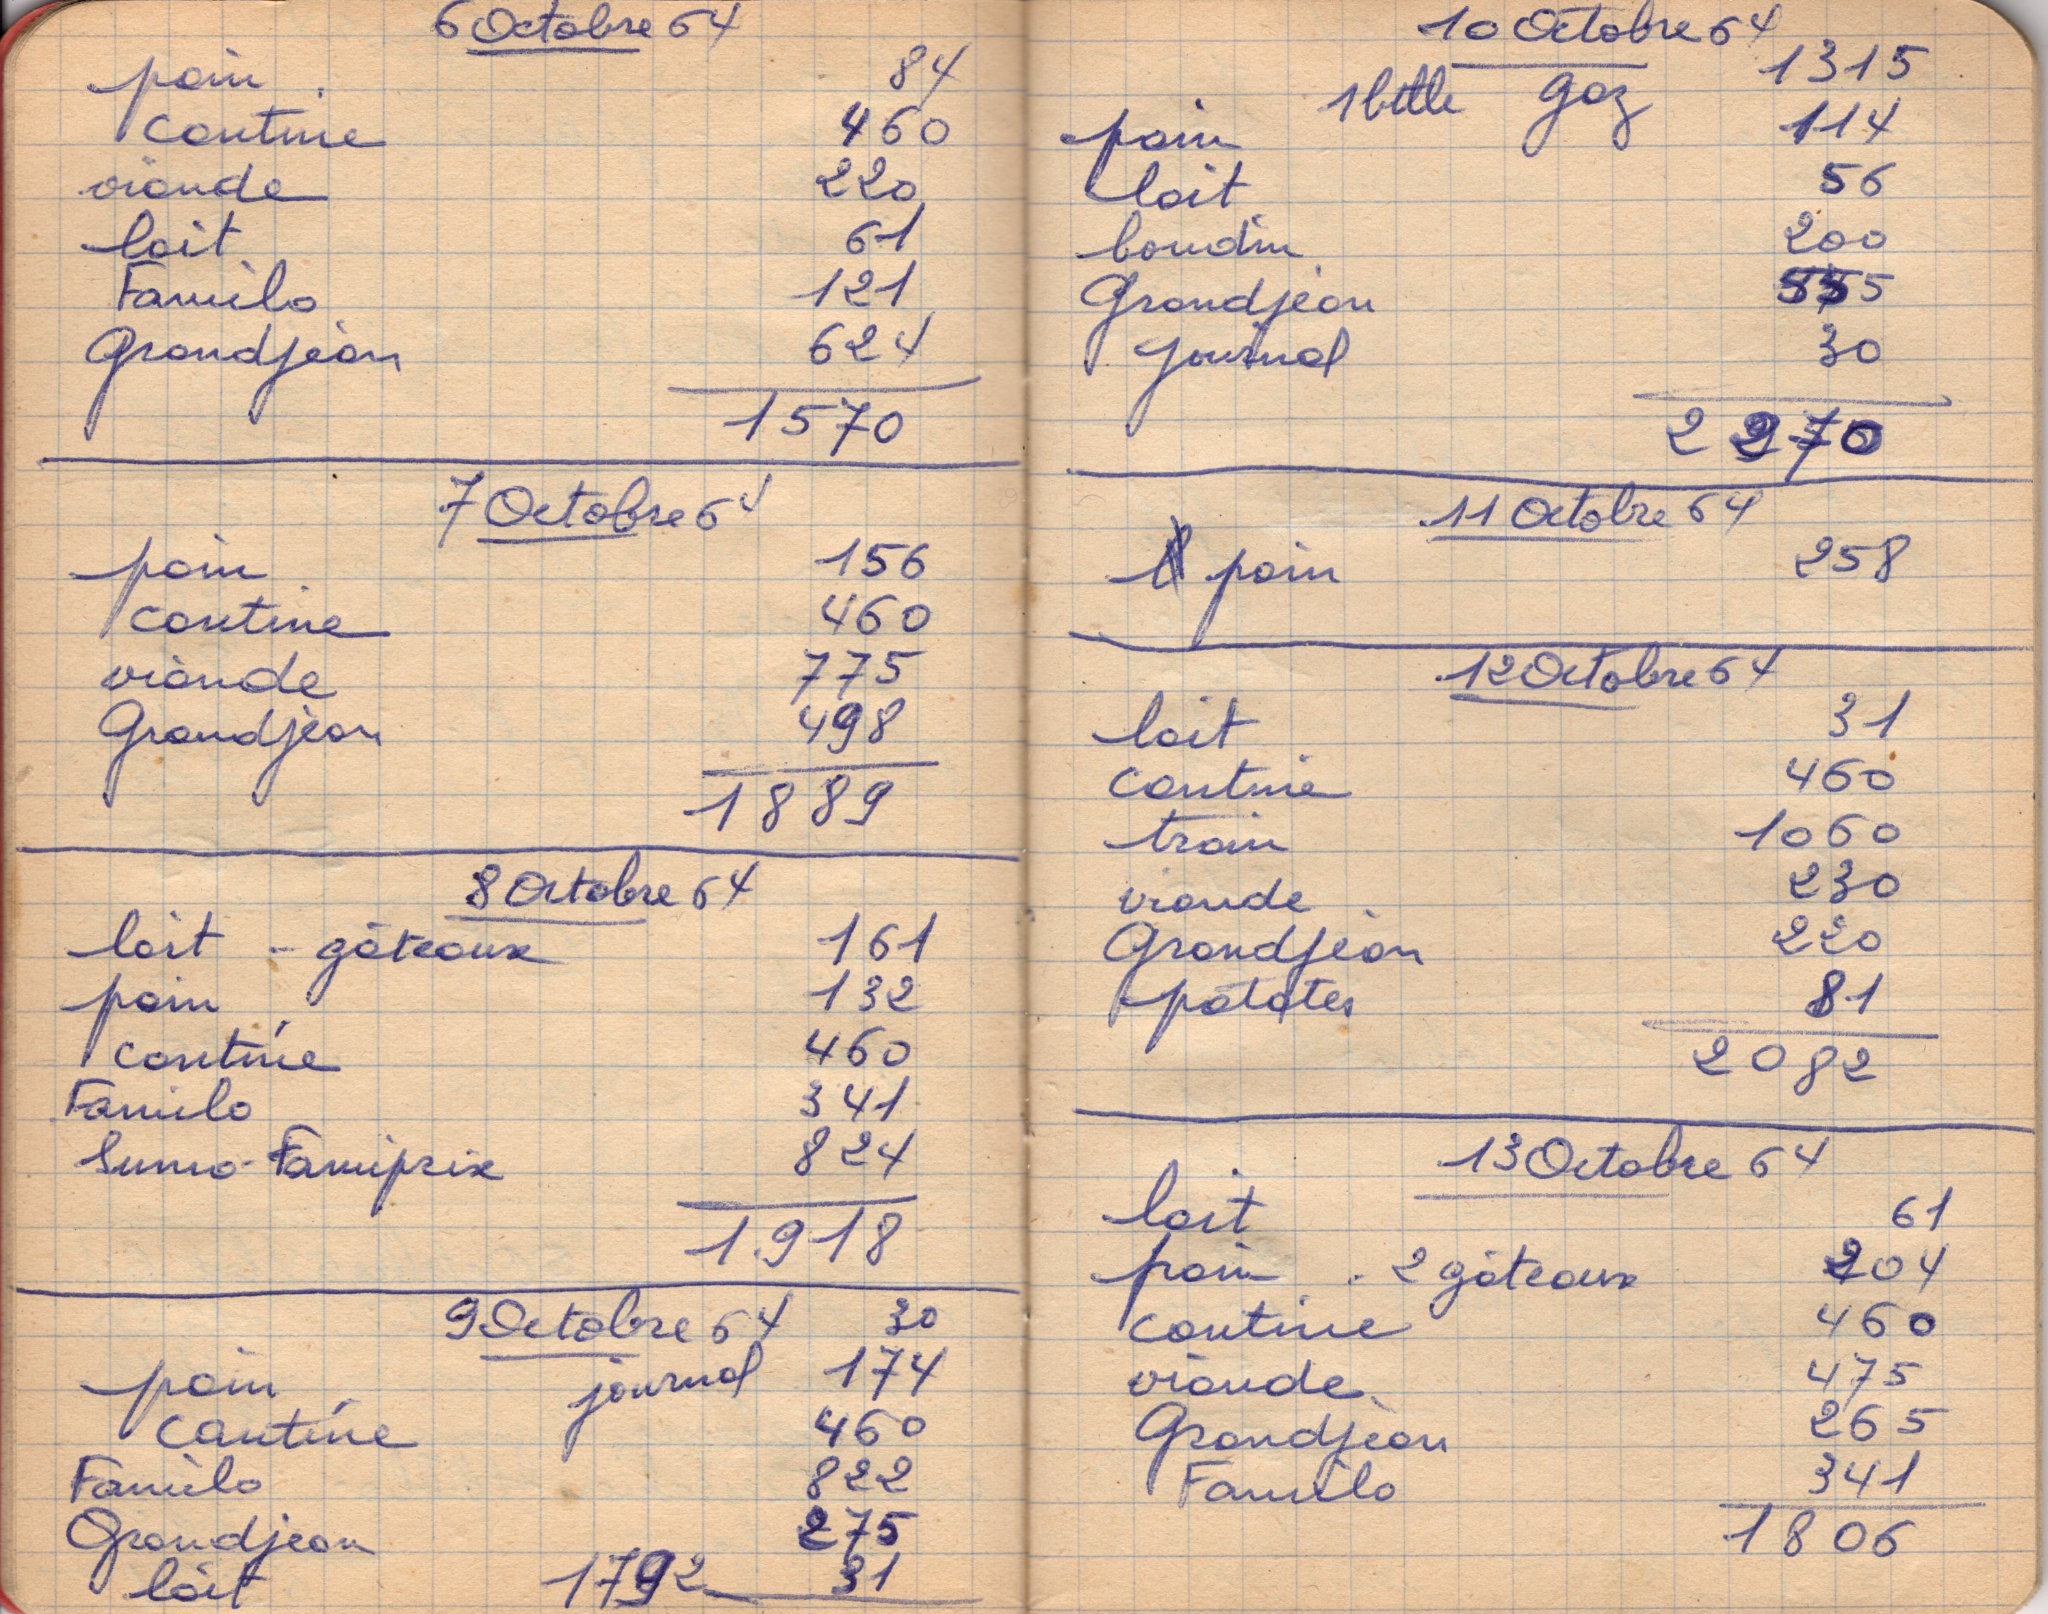 6 Octobre 64
pain 84
cantine 460
viande 220
lait 61
Familo 121
Grandjean 624
1570
7 Octobre 64
pain 156
cantine 460
viande 775
Grandjean 498
1889
8 Octobre 64
lait - gâteaux 161
pain 132
cantine 460
Familo 341
Sumo-Famiprix 824
1918
9 Octobre 64 30
pain journal 174
cantine 460
Familo 822
Grandjean 275
lait 1792 31
10 Octobre 64
1 btlle gaz 1315
pain 114
lait 56
boudin 200
Grandjean 555
journal 30
2270
11 Octobre 64
pain 258
12 Octobre 64
lait 31
cantine 460
train 1060
viande 230
Grandjean 220
patates 81
2082
13 Octobre 64
lait 61
pain - 2 gâteaux 204
cantine 460
viande 475
Grandjean 265
Familo 341
1806